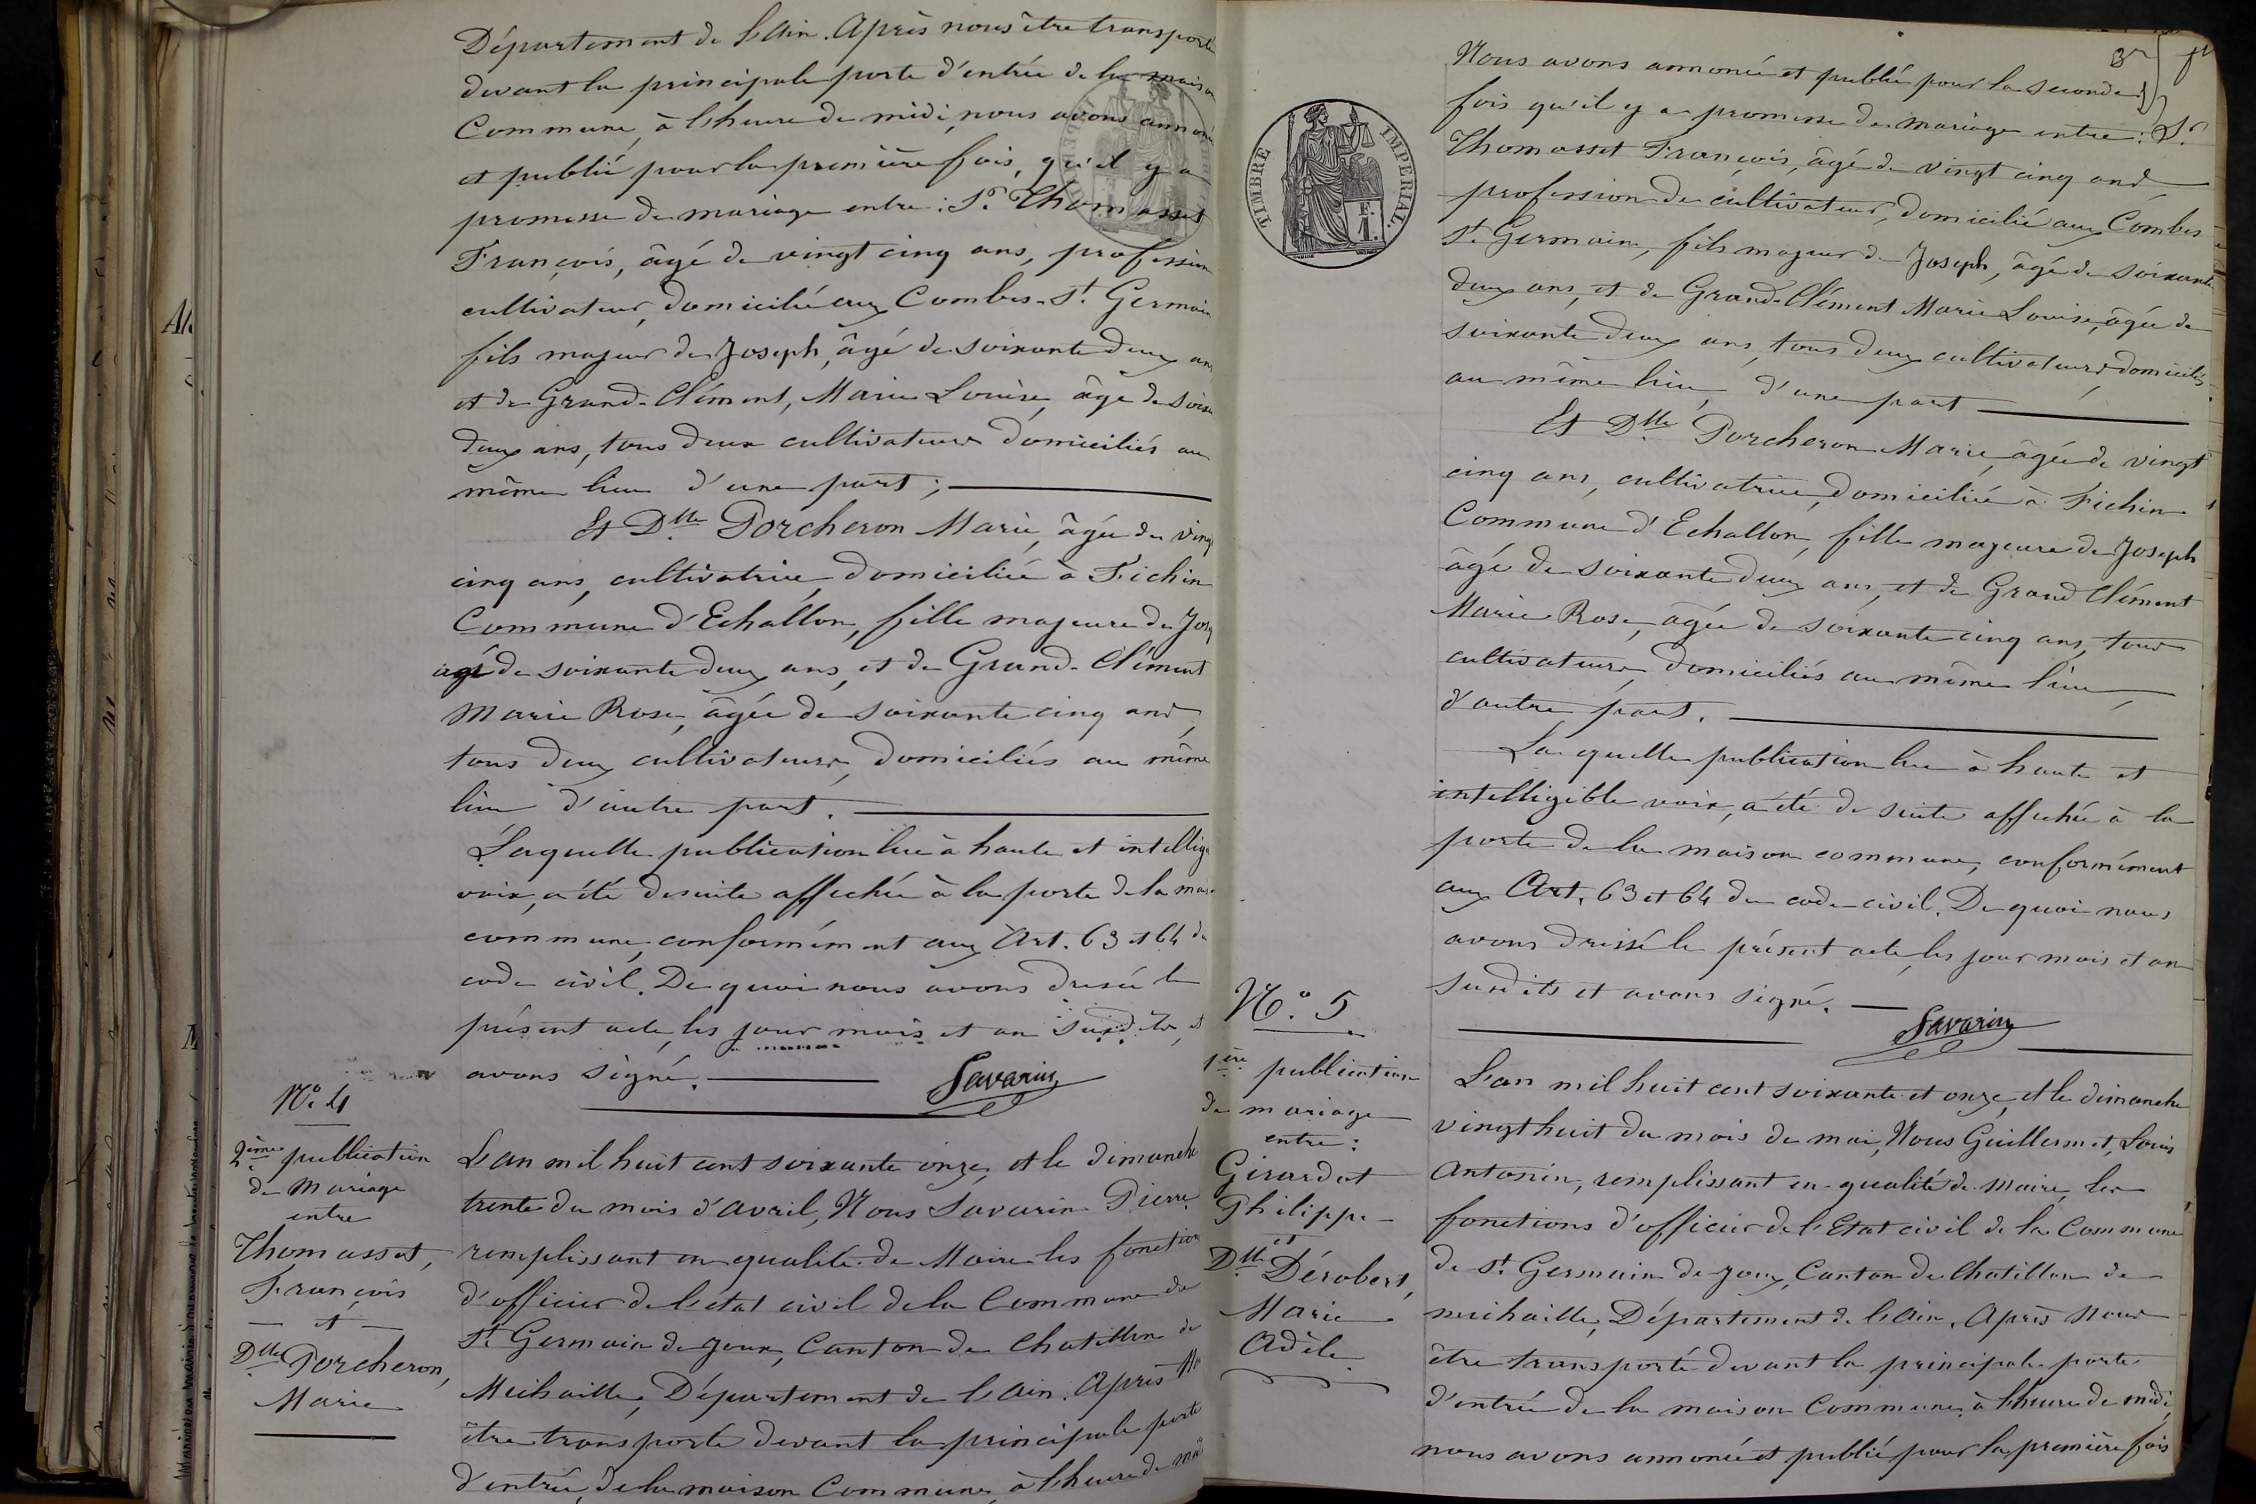 Département de l'Ain. Après nous être transporté
devant la principale porte d'entrée de la maison
Commune, à l'heure de midi, nous avons annoncé
et publié pour la première fois, qu'il y a
promesse de mariage entre : Sr. Thomasset
François, âgé de vingt cinq ans, profession
cultivateur, domicilié aux Combes-St. Germain
fils majeur de Joseph, âgé de soixante deux ans
et de Grand-Clément, Marie Louise, âgé de soix
deux ans, tous deux cultivateurs domiciliés au
même lieu d'une part ;
Et Dlle Porcheron Marie, âgée de ving
cinq ans, cultivatrice, domiciliée à Fichin
Commune d'Echallon, fille majeure de Jos
agé de soixante deux ans, et de Grand-Clément
Marie Rose, âgée de soixante cinq ans,
tous deux cultivateurs, domiciliés au même
lieu d'autre part.
Laquelle publication lue à haute et intellig
voix, a été de suite affichée à la porte de la mai
commune, conformément aux Art. 63 et 64 du
code civil. De quoi nous avons dressé le
présent acte, les jour mois et an susdits, et
avons signé.
Savarin
N° 4
2ème publication
de Mariage
entre
Thomasset,
François
et
Dlle Porcheron,
Marie
L'an mil huit cent soixante onze, et le dimanche
trente du mois d'avril, Nous Savarin Pierre
remplissant en qualité de Maire les fonction
d'officier de l'état civil de la Commune de
St Germain de Joux, Canton de Chatillon de
Michaille, Département de l'Ain. Après No
être transporté devant la principale porte
d'entrée, de la maison Commune, à l'heure de mi
Nous avons annoncé et publié pour la seconde
fois qu'il y a promesse de mariage entre : Sr.
Thomasset François, âgé de vingt cinq ans
profession de cultivateur, domicilié aux Combes
St. Germain, fils majeur de Joseph, âgé de soixante
deux ans, et de Grand-Clément Marie Louise, âgée de
soixante deux ans, tous deux cultivateurs domiciliés
au même lieu, d'une part
Et Dlle Porcheron Marie, âgée de vingt
cinq ans, cultivatrice, domiciliée à Fichin
Commune d'Echallon, fille majeure de Joseph
âgé de soixante deux ans, et de Grand Clément
Marie Rose, agée de soixante cinq ans, tous
cultivateurs, domiciliés au même lieu,
d'autre part.
Laquelle publication lue à haute et
intelligible voix, a été de suite affichée à la
porte de la maison commune, conformément
aux Art. 63 et 64 du code civil. De quoi nous
avons dressé le présent acte, les jour mois et an
susdits et avons signé.
Savarin
TIMBRE IMPÉRIAL.
N° 5
1ère publication
de mariage
entre :
Girardet
Philippe
et
Dlle Dérobert,
Marie
Adèle
L'an mil huit cent soixante et onze, et le dimanche
vingt huit du mois de mai, Nous Guillermet, Louis
Antonin, remplissant en qualité de maire, les
fonctions d'officier de l'Etat civil de la Commune
de St. Germain de Joux, Canton de Chatillon de
michaille, Département de l'Ain. Après Nous
être transporté devant la principale porte
d'entrée de la maison Commune, à l'heure de midi,
nous avons annoncé et publié pour la première fois